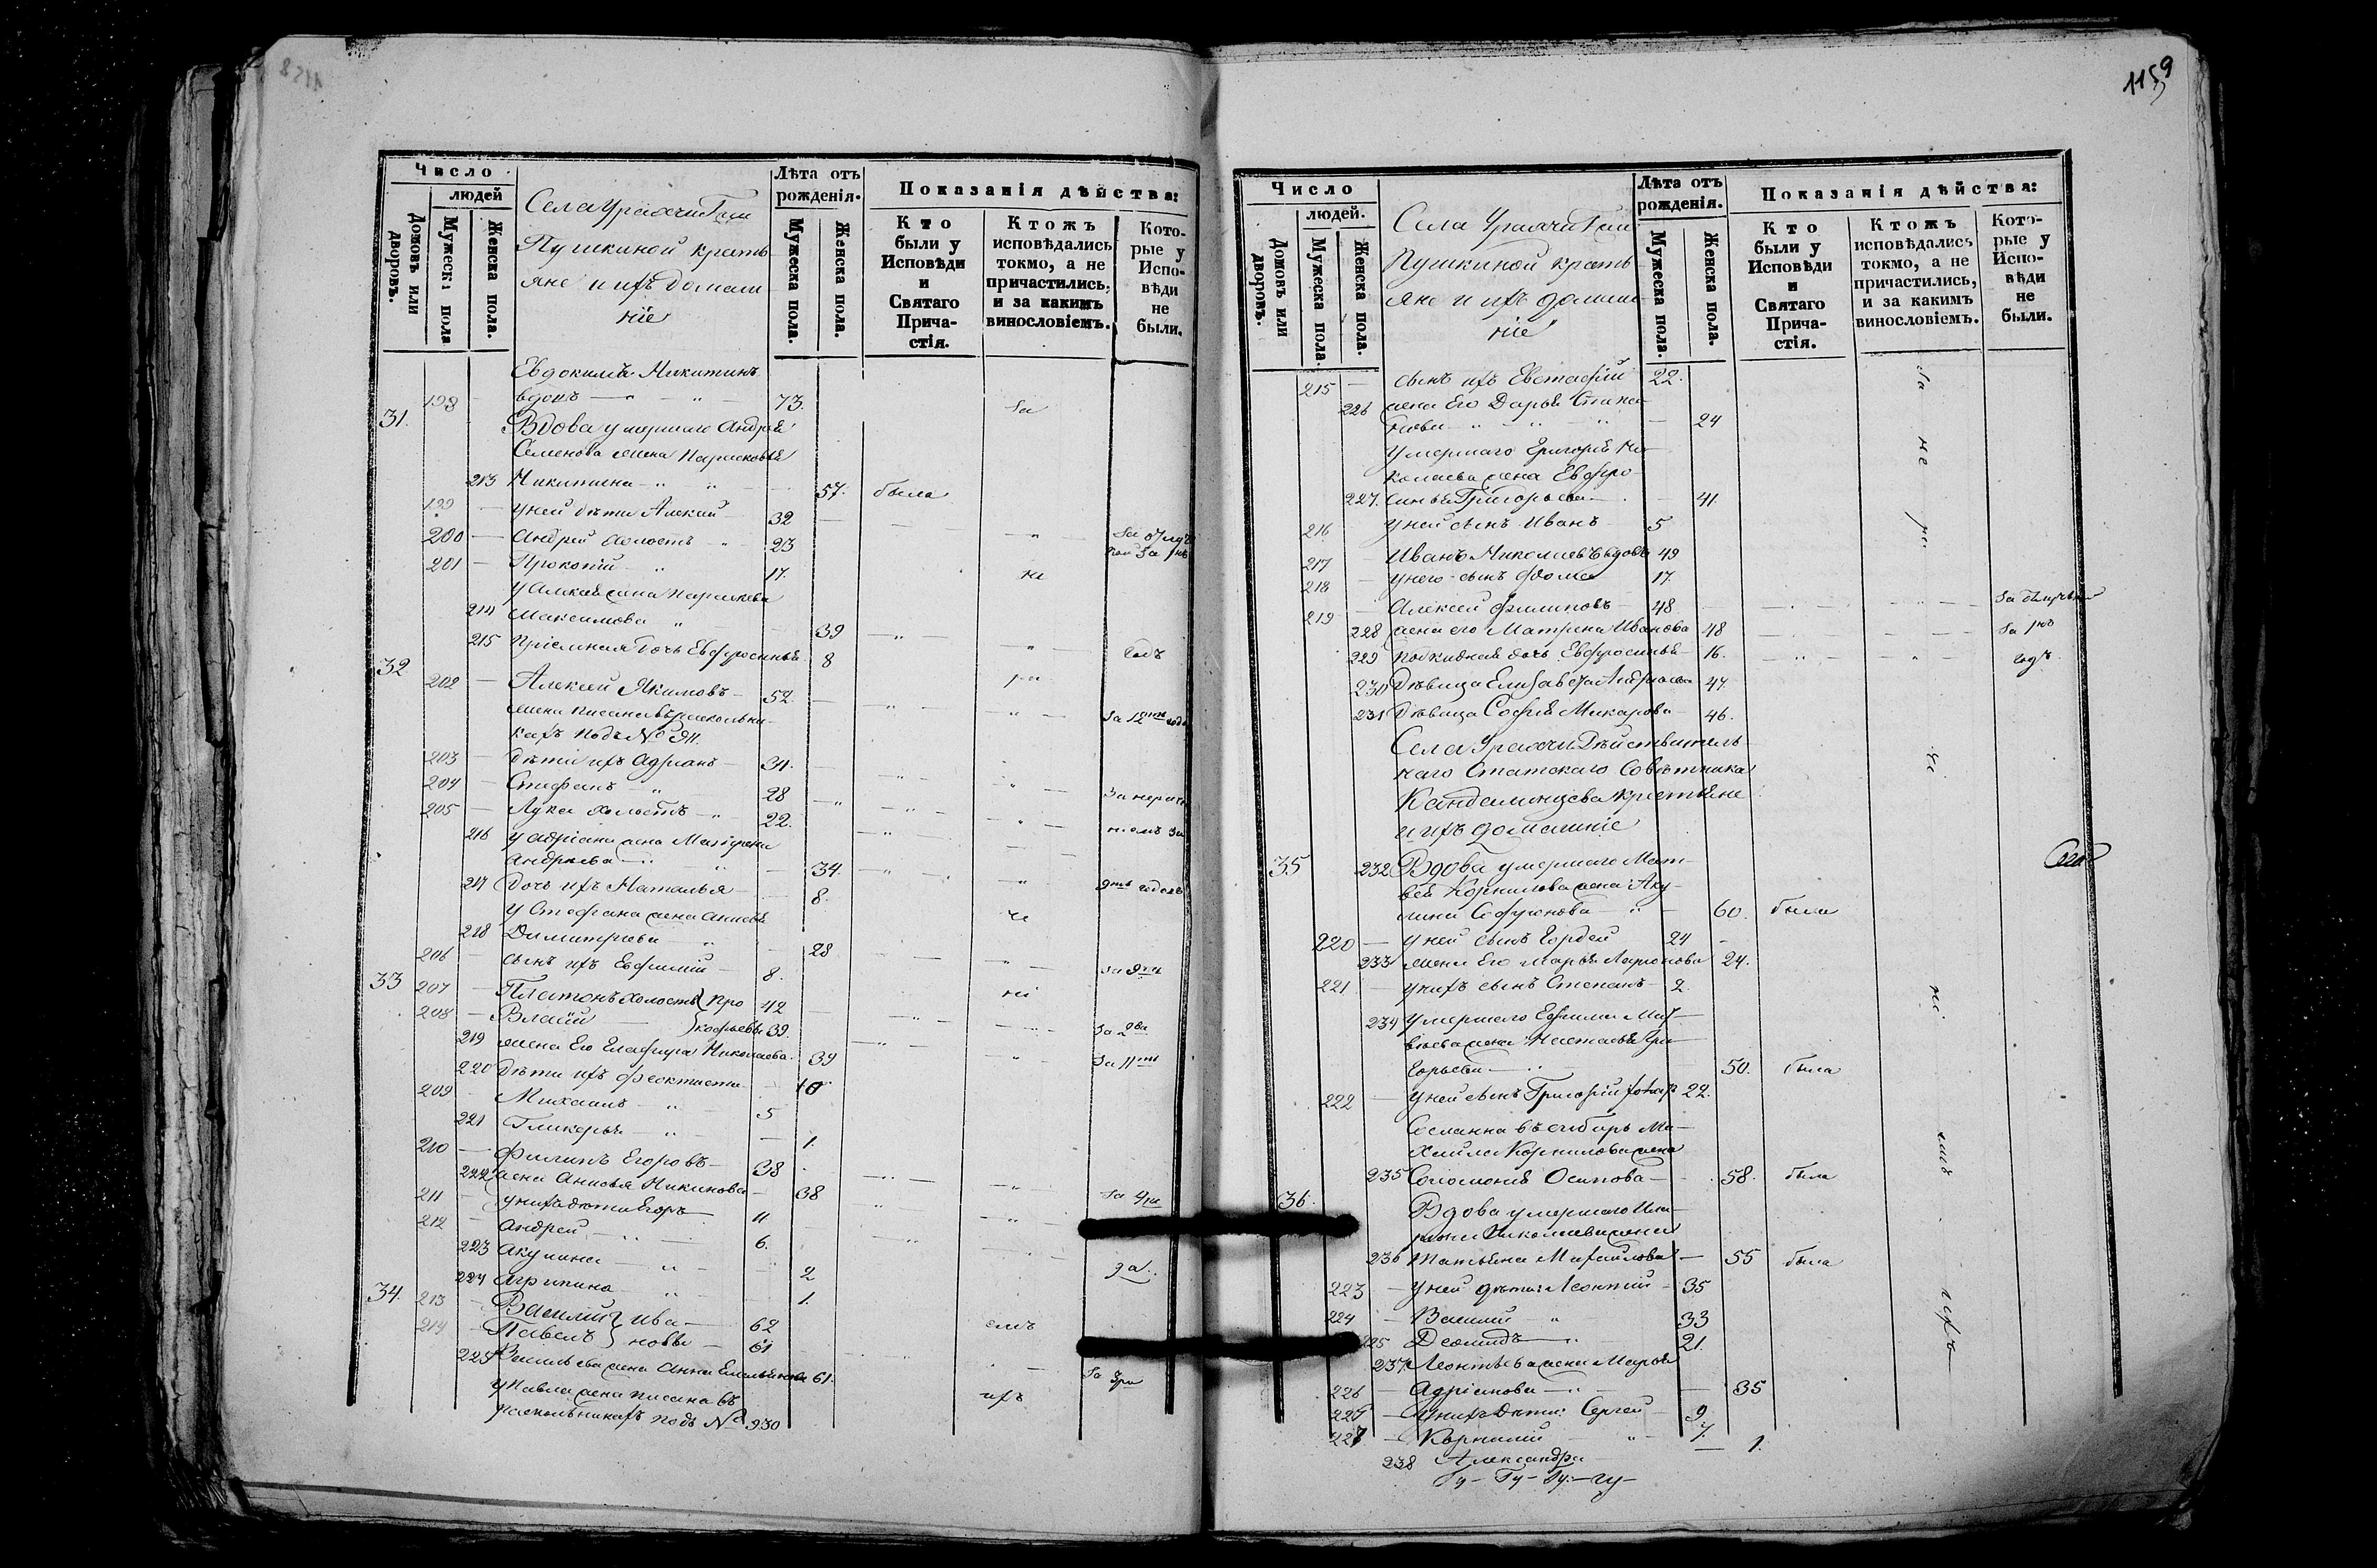 Число
людей
Домовъ или дворовъ.
Мужеска пола
Женска пола.
Села
Пушкиной крестья
яне и ихъ домаш
ніе
Лѣта отъ рожденія.
Мужеска пола.
Женска пола.
Показанія дѣйства:
Кто были у Исповѣди и Святаго Причастія.
Ктожъ исповѣдались токмо, а не причастились, и за какимъ винословіемъ.
Которые у Исповѣди не были.
Евдокимъ Никитинъ
198 вдовъ 73. За
31. Вдова умершаго Андрей
Семенова жена Парасковья
213 Никитина 57. была
199 у ней дѣти Алексей 32
200 Андрей холостъ 23
201 Прокопій 17. не
у Алексея жена Параскева
214 Максимова 39
215 Пріемная дочь Евфросинья 8 годъ
32 202 Алексей Якимовъ 52 ра
жена писана въ раскольни
кахъ подъ № 911. За 12ть года
203 дѣти ихъ Адріанъ 31.
204 Стефанъ 28
205 Лука холостъ 22.
216 у Адріана жена Матрена
Андреева 34.
217 дочь ихъ Наталья 8. годовъ
у Стефана жена Анисья
218 Димитріева 28
206 сынъ ихъ Евфимій 8. За
33 207 Платонъ холостъ Про 42 ні
208 Власій кофьевы 39. За два
219 жена Его Глафира Николаева 39 За 11ть
220 Дѣти ихъ Феоктиста 10
209 Михаилъ 5
221 Гликерья 1.
210 Филипъ Егоровъ 38
222 жена Анисья Никинова 38
211 у нихъ дѣти Егоръ 11 За 4ре
212 Андрей 6.
223 Акулина 2
224 Агрипина 1. да
34. 213 Василій Ива 62
214 Павелъ новы 61 емъ
225 Васильева жена Анна Емельянова 61. За три
у Павла жена писана въ ихъ
раскольникахъ подъ № 930
1159
Число
людей.
Домовъ или дворовъ.
Мужеска пола.
Женска пола.
Села
Пушкиной крестья
яне и ихъ домаш
ніе
Лѣта отъ рожденія.
Мужеска пола.
Женска пола.
Показанія дѣйства:
Кто были у Исповѣди и Святаго Причастія.
Ктожъ исповѣдались токмо, а не причастились, и за какимъ винословіемъ.
Которые у Исповѣди не были.
215 сынъ ихъ Евстафій 22. За
226 жена Его Дарья Степа
нова 24
умершаго Григорій Ни не
колаева жена Евфро
227. синья Григорьева 41.
216 у ней сынъ Иванъ 5 ра
217 Иванъ Николаевъ вдовъ 49
218 у него сынъ Фома 17.
219 Алексей Филиповъ 48
228 жена его Матрена Иванова 48
229 подкидная дочь Евфросинья 16. годъ
230 Дѣвица Елизавета Андреева 47.
231 Дѣвица Софія Макарова 46.
Села Дѣйствитель
наго Статскаго Совѣтника че
крестьяне
и ихъ домашніе
35 232 Вдова умершаго Мат
вѣя Корнилова жена Аку
лина Софронова 60. была
220 у ней сынъ Гордей 24
233 жена Его Марья Ларіонова 24.
221 у нихъ сынъ Степанъ 2. ні
234 умершаго Ефима Мат
вѣева жена Настасья Гри
горьева 50. была
222 у ней сынъ Григорій 22.
Сосланна въ сибирь Ми емъ
хаила Корнилова жена
235 Соломонія Осипова 58. была
36. Вдова умершаго
Николаева жена
236 Татьяна Михайлова 55 была
223 у ней дѣти: Леонтій 35
224 Василій 33 ихъ
225 Деомидъ 21.
237. Леонтьева жена Марья
226 Адріанова 35
226 у нихъ дѣти: Сергей 9
227 Корнилій 7.
238 Александра 1.